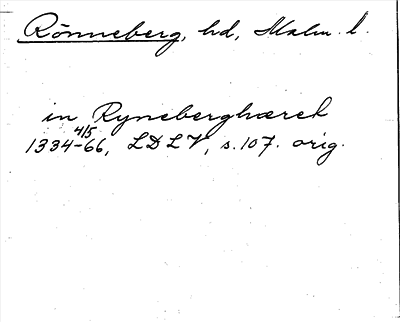 Rönneberg, hd, Malm. l.
in Ryneberghæret
4/5
1334-66, LDLV, s. 107. orig.